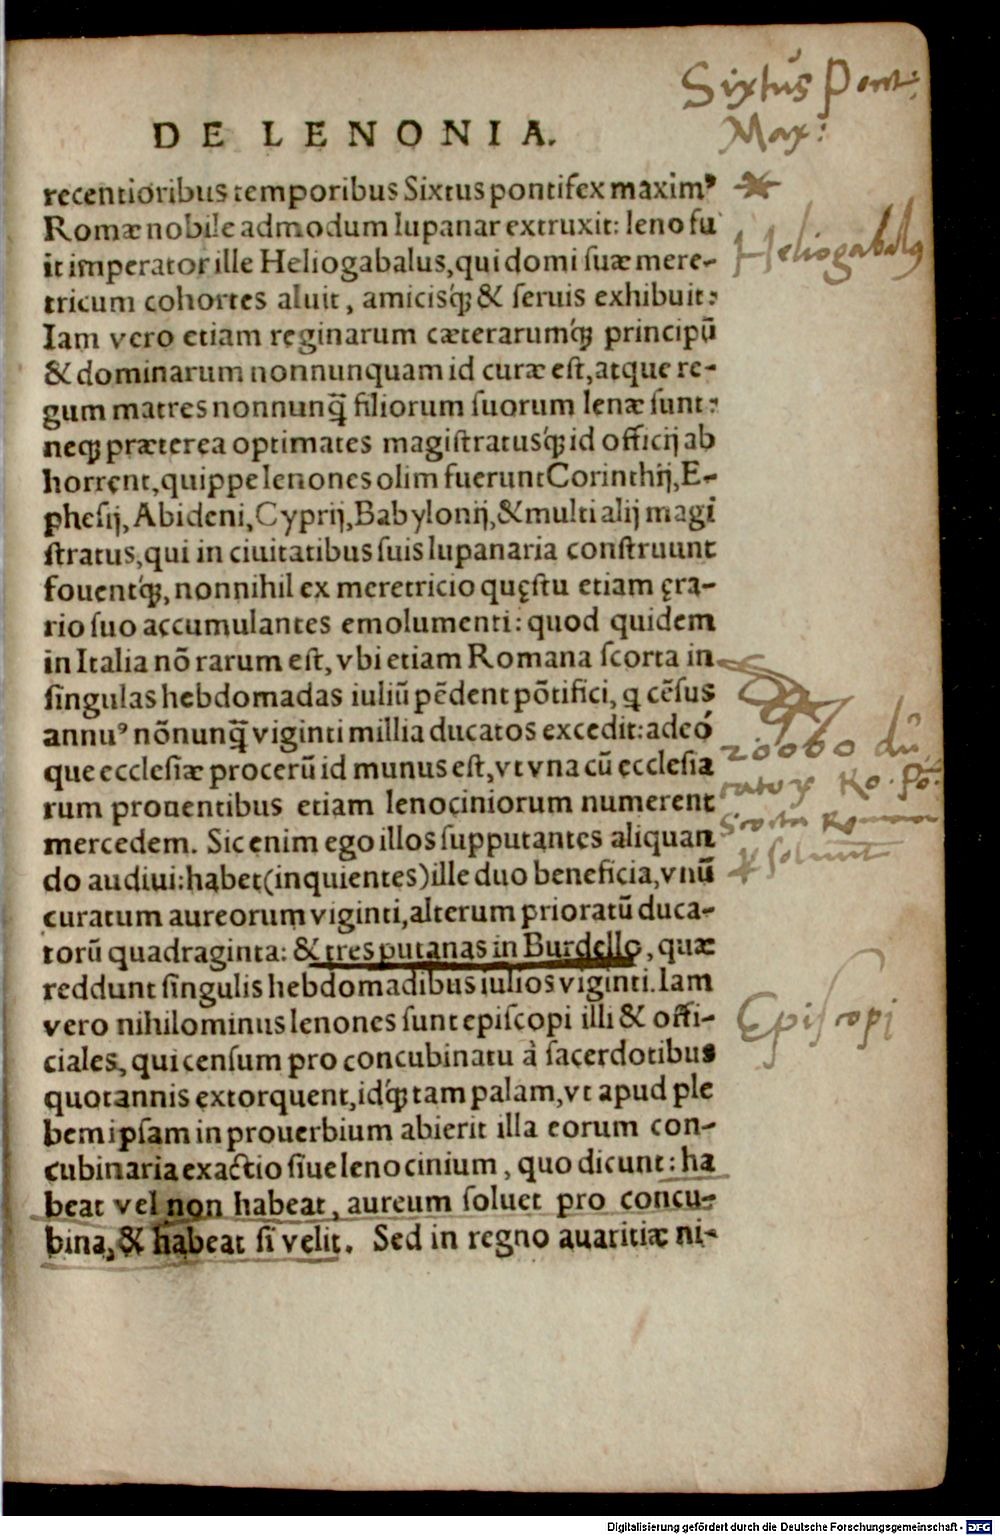 Sixtus Pont:
Max:
DE LENONIA.
recentioribus temporibus Sixtus pontifex maximꝰ
Romæ nobile admodum lupanar extruxit: leno fu
it imperator ille Heliogabalus, qui domi suæ mere-
Heliogabalus
tricum cohortes aluit, amicisq́; & seruis exhibuit:
Iam vero etiam reginarum cæterarumq́; principũ
& dominarum nonnunquam id curæ est, atque re-
gum matres nonnunq̃ filiorum suorum lenæ sunt:
neq; præterea optimates magistratusq́; id officij ab
horrent, quippe lenones olim fuerunt Corinthij, E-
phesij, Abideni, Cyprij, Babylonij, & multi alij magi
stratus, qui in ciuitatibus suis lupanaria construunt
fouentq́;, nonnihil ex meretricio quęstu etiam ęra-
rio suo accumulantes emolumenti: quod quidem
in Italia nõ rarum est, vbi etiam Romana scorta in
singulas hebdomadas iuliũ pẽdent põtifici, q cẽsus
annuꝰ nõnunq̃ viginti millia ducatos excedit: adeó
20000 du
que ecclesiæ procerũ id munus est, vt vna cũ ecclesia
catorꝝ Ro. Põ:
rum prouentibus etiam lenociniorum numerent
Scorta Romana
mercedem. Sic enim ego illos supputantes aliquan
soluunt
do audiui: habet (inquientes) ille duo beneficia, vnũ
curatum aureorum viginti, alterum prioratũ duca-
torũ quadraginta: & tres putanas in Burdello, quæ
reddunt singulis hebdomadibus iulios viginti. Iam
vero nihilominus lenones sunt episcopi illi & offi-
Episcopi
ciales, qui censum pro concubinatu à sacerdotibus
quotannis extorquent, idq́; tam palam, vt apud ple
bem ipsam in prouerbium abierit illa eorum con-
cubinaria exactio siue lenocinium, quo dicunt: ha
beat vel non habeat, aureum soluet pro concu-
bina, & habeat si velit. Sed in regno auaritiæ ni-
Digitalisierung gefördert durch die Deutsche Forschungsgemeinschaft - DFG